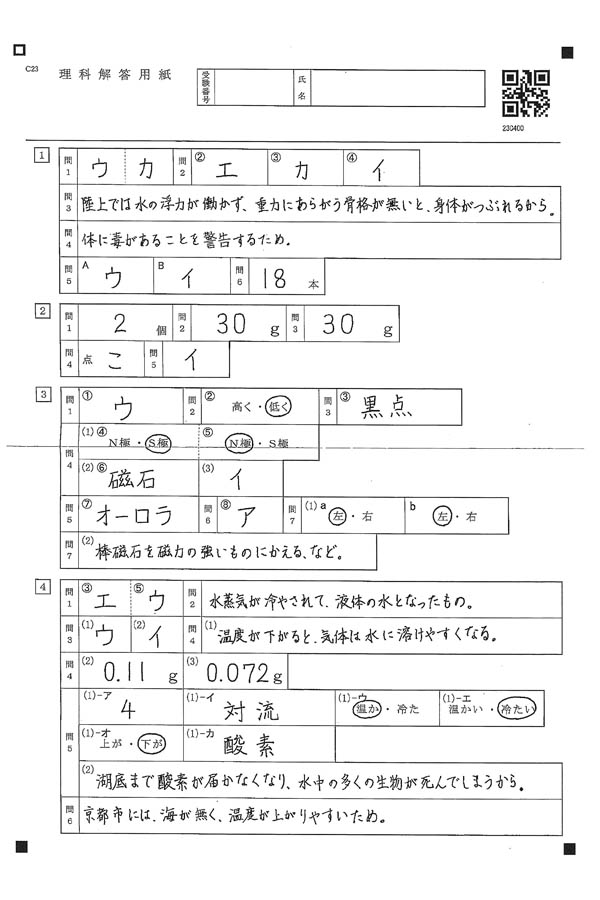 C23 理科解答用紙 受験番号 氏名
230400
1 問1 ウ カ 問2 ② エ ③ カ ④ イ
問3 陸上では水の浮力が働かず、重力にあらがう骨格が無いと、身体がつぶれるから。
問4 体に毒があることを警告するため。
問5 A ウ B イ 問6 18 本
2 問1 2 個 問2 30 g 問3 30 g
問4 点 こ 問5 イ
3 問1 ① ウ 問2 ② 高く・低く 問3 ③ 黒点
問4 (1)④ N極・S極 ⑤ N極・S極
(2)⑥ 磁石 (3) イ
問5 ⑦ オーロラ 問6 ⑧ ア 問7 (1)a 左・右 b 左・右
問7 (2) 棒磁石を磁力の強いものにかえる、など。
4 問1 ③ エ ⑤ ウ 問2 水蒸気が冷やされて、液体の水となったもの。
問3 (1) ウ (2) イ 問4 (1) 温度が下がると、気体は水に溶けやすくなる。
問4 (2) 0.11 g (3) 0.072 g
問5 (1)-ア 4 (1)-イ 対流 (1)-ウ 温か・冷た (1)-エ 温かい・冷たい
(1)-オ 上が・下が (1)-カ 酸素
(2) 湖底まで酸素が届かなくなり、水中の多くの生物が死んでしまうから。
問6 京都市には、海が無く、温度が上がりやすいため。